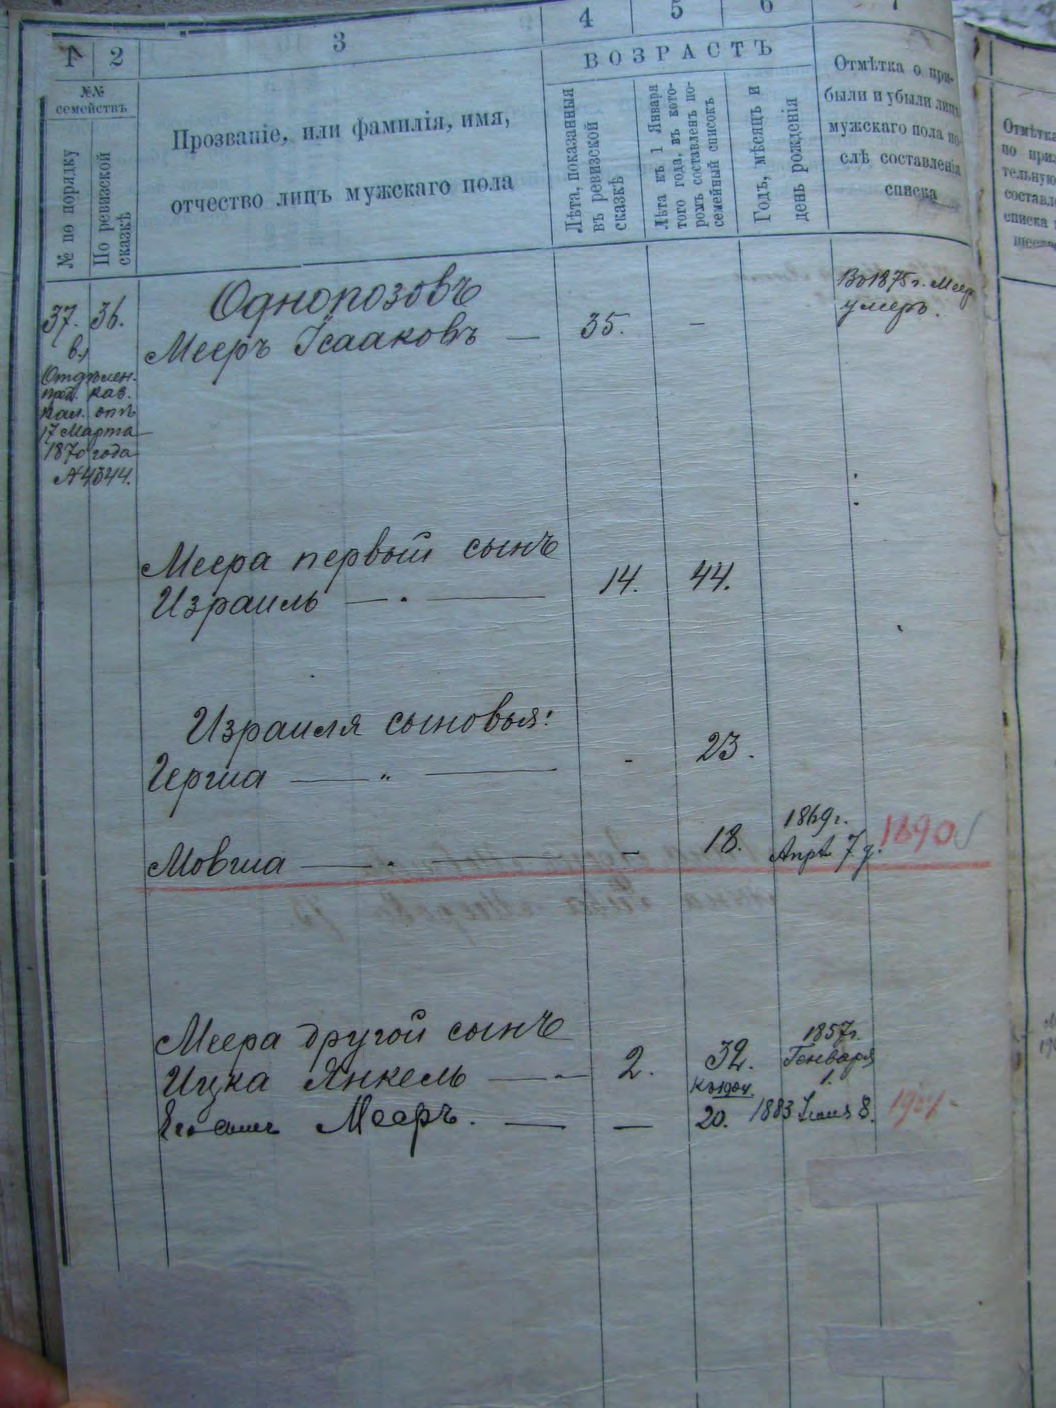 1 2 3 4 5 6 7
№№ семействъ
№ по порядку
По ревизской сказкѣ
Прозваніе, или фамилія, имя,
отчество лицъ мужскаго пола
ВОЗРАСТЪ
Лѣта, показанныя
въ ревизской
сказкѣ
Лѣта къ 1 Января
того года, въ кото-
ромъ составленъ по-
семейный списокъ
Годъ, мѣсяцъ и
день рожденія
Отмѣтка о при-
были и убыли лицъ
мужскаго пола по-
слѣ составленія
списка
Отмѣтка
по при
тельную
составле
списка
37. 36.
в.,
Отдѣлен.
пред. каз.
пал. отъ
17 Марта
1870 года
№ 4344.
Однопозовъ
Мееръ Ісааковъ — 35. —
Во 1875 г. Меер
умеръ.
Меера первый сынъ
Израиль — 14. 44.
Израиля сыновья:
Герша — " — - 23.
Мовша — " — - 18. 1869 г.
Апрѣ 7 д. 1890
Меера другой сынъ
Ицка Янкель — 2. 32. 1857 г.
Генваря
1.
Его сынъ Мееръ. — — 20. 1883 8. 1904